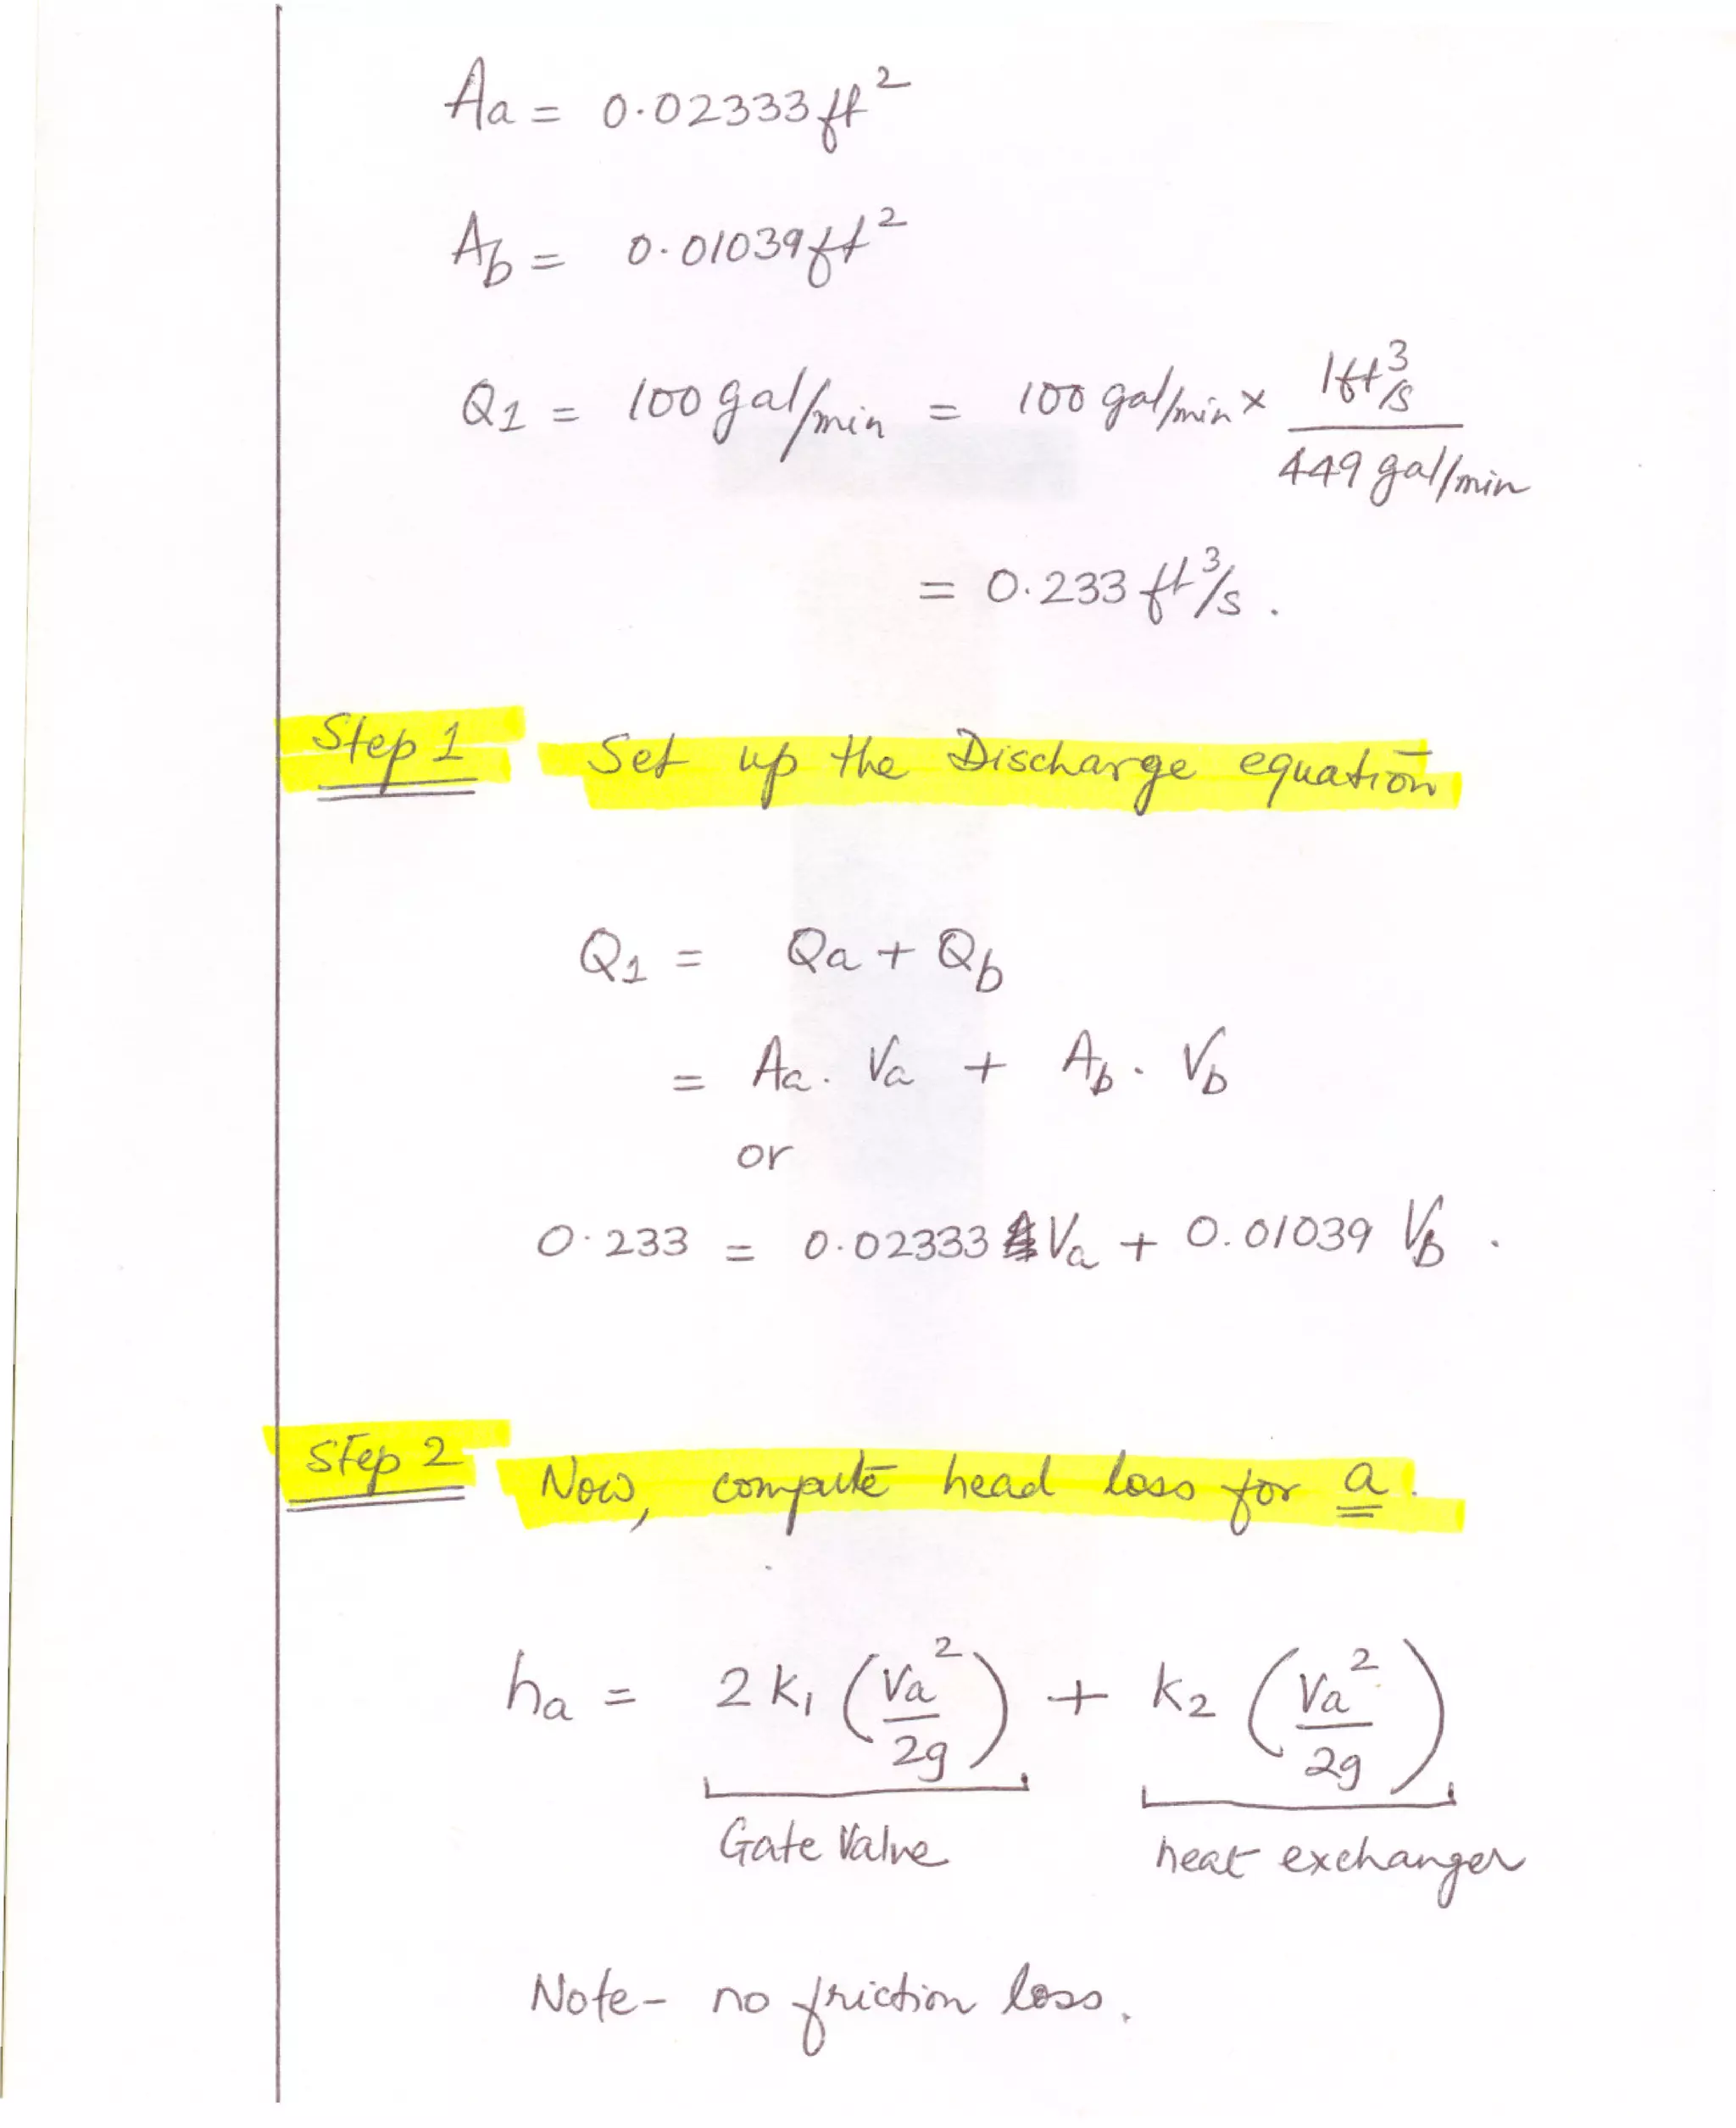 Aa = 0.02333 ft²
Ab = 0.01039 ft²
Q1 = 100 gal/min = 100 gal/min × 1ft³/s / 449 gal/min
= 0.233 ft³/s.
Step 1 Set up the Discharge equation
Q1 = Qa + Qb
= Aa. Va + Ab. Vb
or
0.233 = 0.02333 Va + 0.01039 Vb.
Step 2 Now, compute head loss for a.
ha = 2 K₁ (Va²/2g) + K₂ (Va²/2g)
Gate Valve heat exchanger
Note- no friction loss.